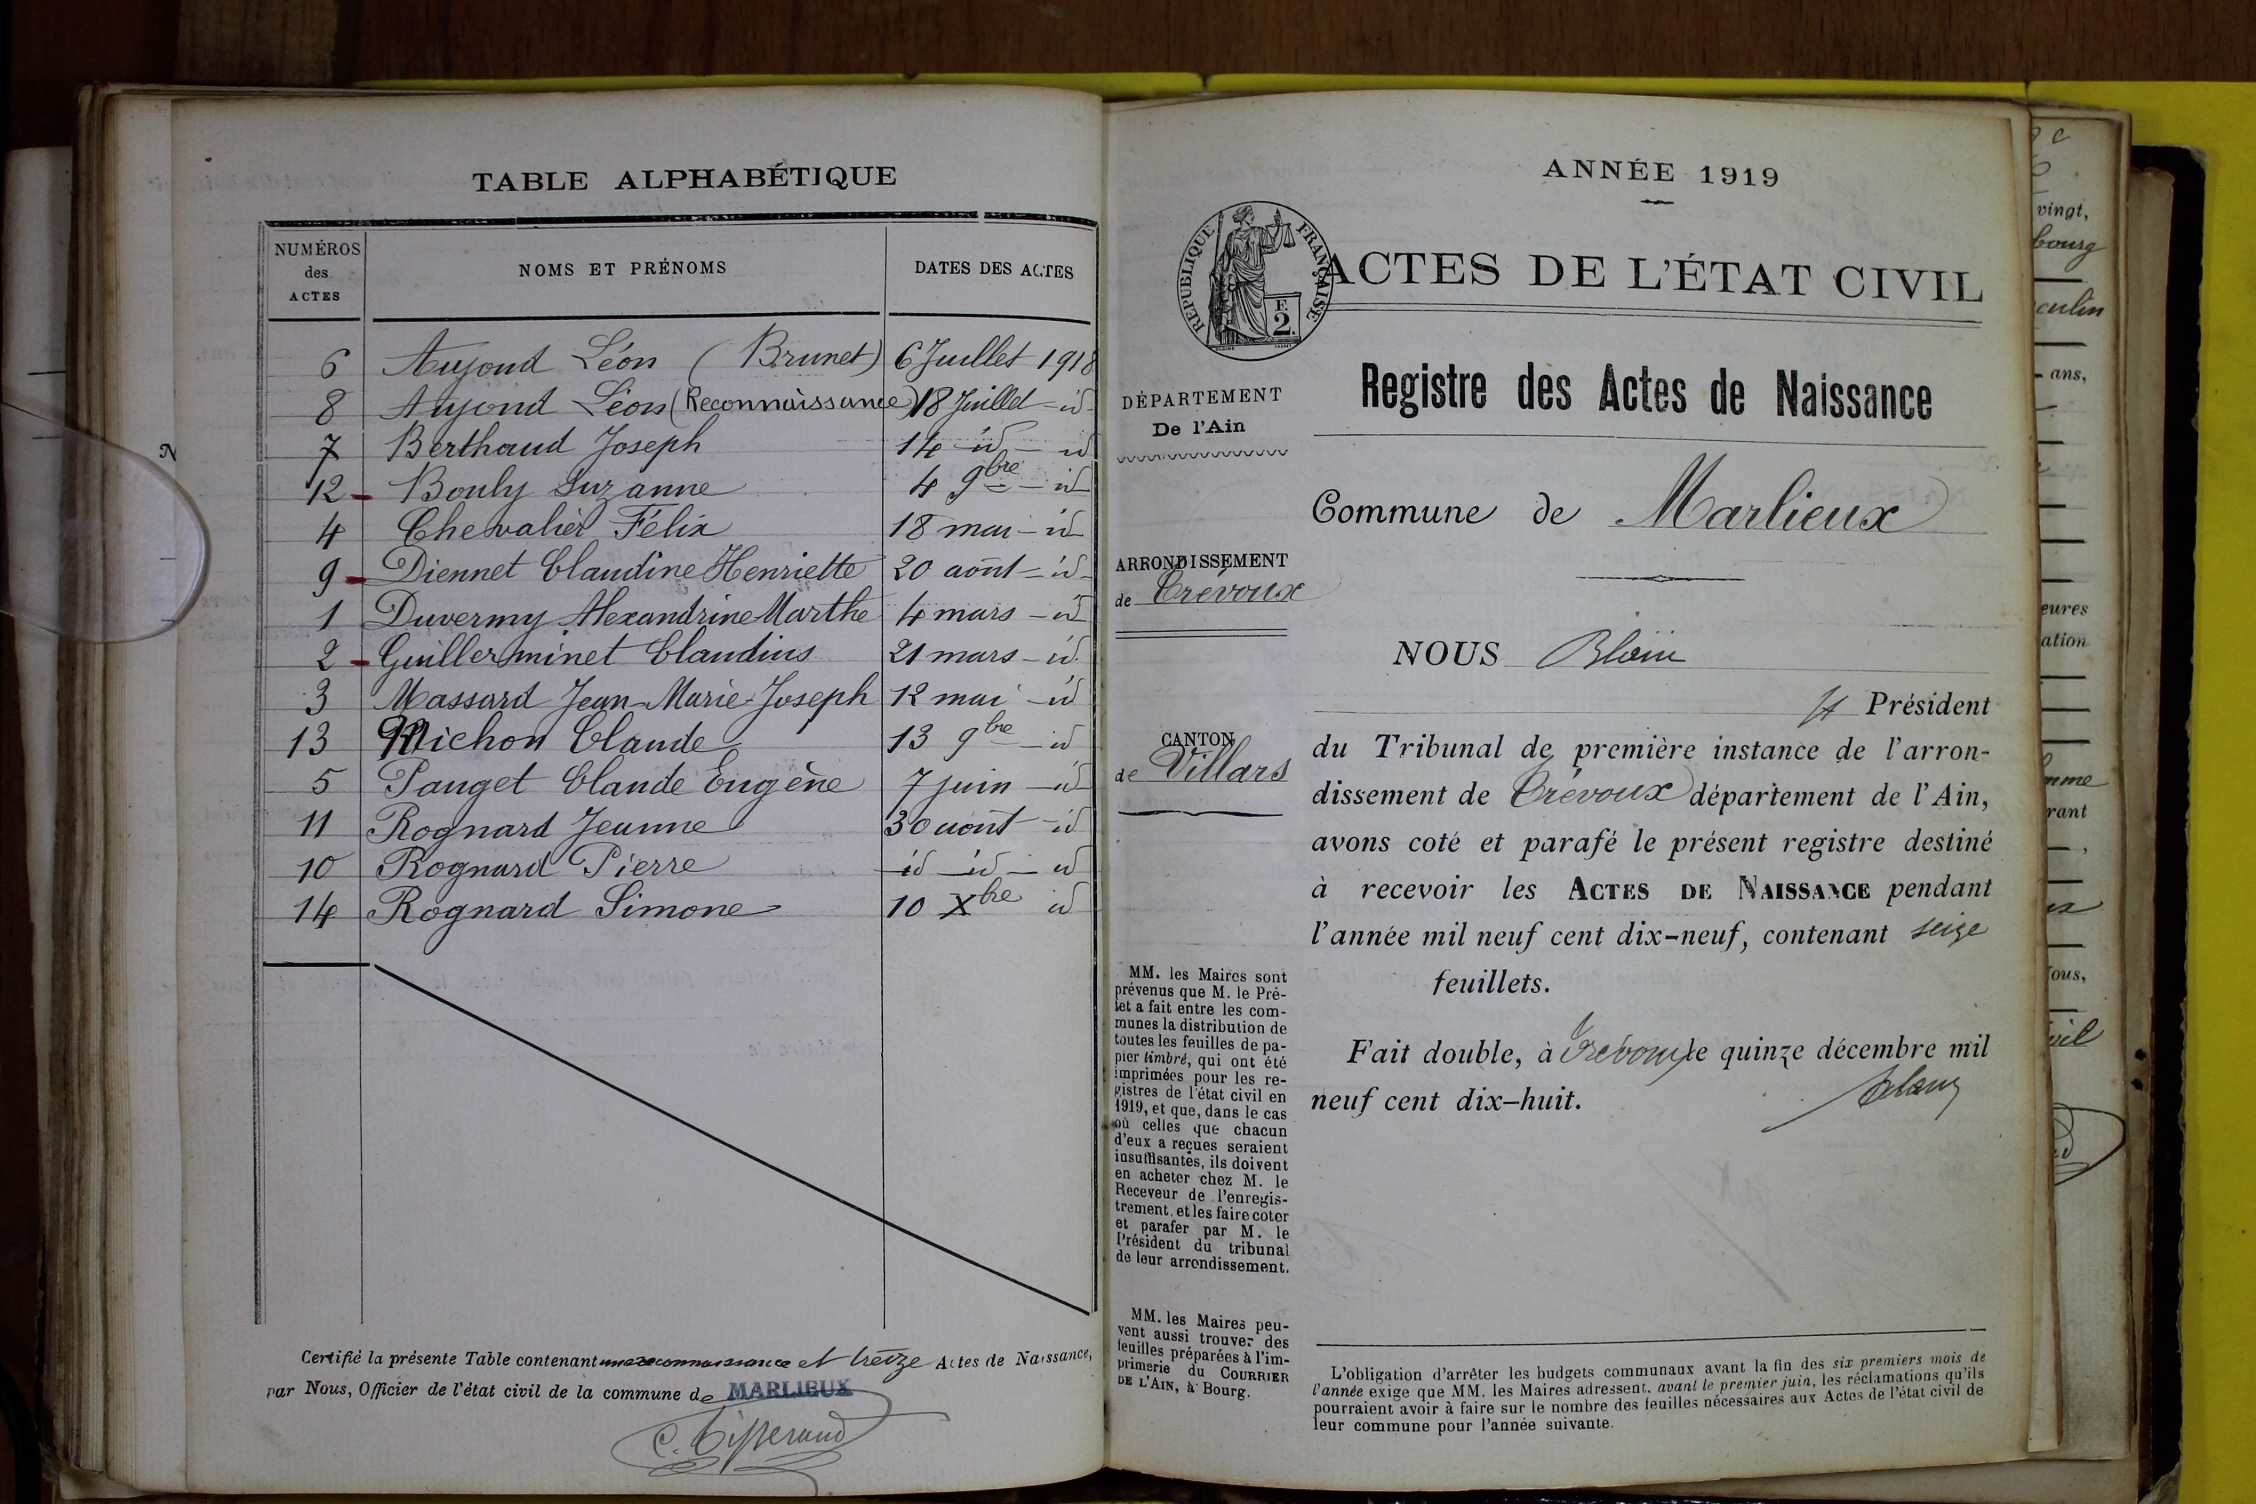 TABLE ALPHABÉTIQUE
NUMÉROS des ACTES
NOMS ET PRÉNOMS
DATES DES ACTES
6 Aujoud Léon (Brunet) 6 Juillet 1918
8 Aujoud Léon (Reconnaissance) 18 Juillet - id -
7 Berthaud Joseph 14 - id - id
12 - Bouly Suzanne 4 9bre - id
4 Chevalier Félix 18 mai - id
9 - Diennet Claudine Henriette 20 août - id -
1 Duvermy Alexandrine Marthe 4 mars - id
2 - Guillerminet Claudius 21 mars - id.
3 Massard Jean-Marie-Joseph 12 mai - id
13 Michon Claude 13 9bre - id
5 Pauget Claude Eugène 7 juin - id
11 Rognard Jeanne 30 août - id
10 Rognard Pierre - id - id - id
14 Rognard Simone 10 Xbre id
Certifié la présente Table contenant une reconnaissance et treize Actes de Naissance,
par Nous, Officier de l'état civil de la commune de MARLIEUX
C. Tisserand
ANNÉE 1919
RÉPUBLIQUE FRANÇAISE
F.
2.
ACTES DE L'ÉTAT CIVIL
Registre des Actes de Naissance
DÉPARTEMENT
De l'Ain
Commune de Marlieux
ARRONDISSEMENT
de Trévoux
CANTON
de Villars
MM. les Maires sont
prévenus que M. le Pré-
fet a fait entre les com-
munes la distribution de
toutes les feuilles de pa-
pier timbré, qui ont été
imprimées pour les re-
gistres de l'état civil en
1919, et que, dans le cas
où celles que chacun
d'eux a reçues seraient
insuffisantes, ils doivent
en acheter chez M. le
Receveur de l'enregis-
trement, et les faire coter
et parafer par M. le
Président du tribunal
de leur arrondissement.
MM. les Maires peu-
vent aussi trouver des
feuilles préparées à l'im-
primerie du COURRIER
DE L'AIN, à Bourg.
NOUS Blain
Président
du Tribunal de première instance de l'arron-
dissement de Trévoux département de l'Ain,
avons coté et parafé le présent registre destiné
à recevoir les ACTES DE NAISSANCE pendant
l'année mil neuf cent dix-neuf, contenant seize
feuillets.
Fait double, à Trévoux le quinze décembre mil
neuf cent dix-huit.
L'obligation d'arrêter les budgets communaux avant la fin des six premiers mois de
l'année exige que MM. les Maires adressent, avant le premier juin, les réclamations qu'ils
pourraient avoir à faire sur le nombre des feuilles nécessaires aux Actes de l'état civil de
leur commune pour l'année suivante.
vingt,
bourg
culin
ans,
eures
ation
mme
rant
ous,